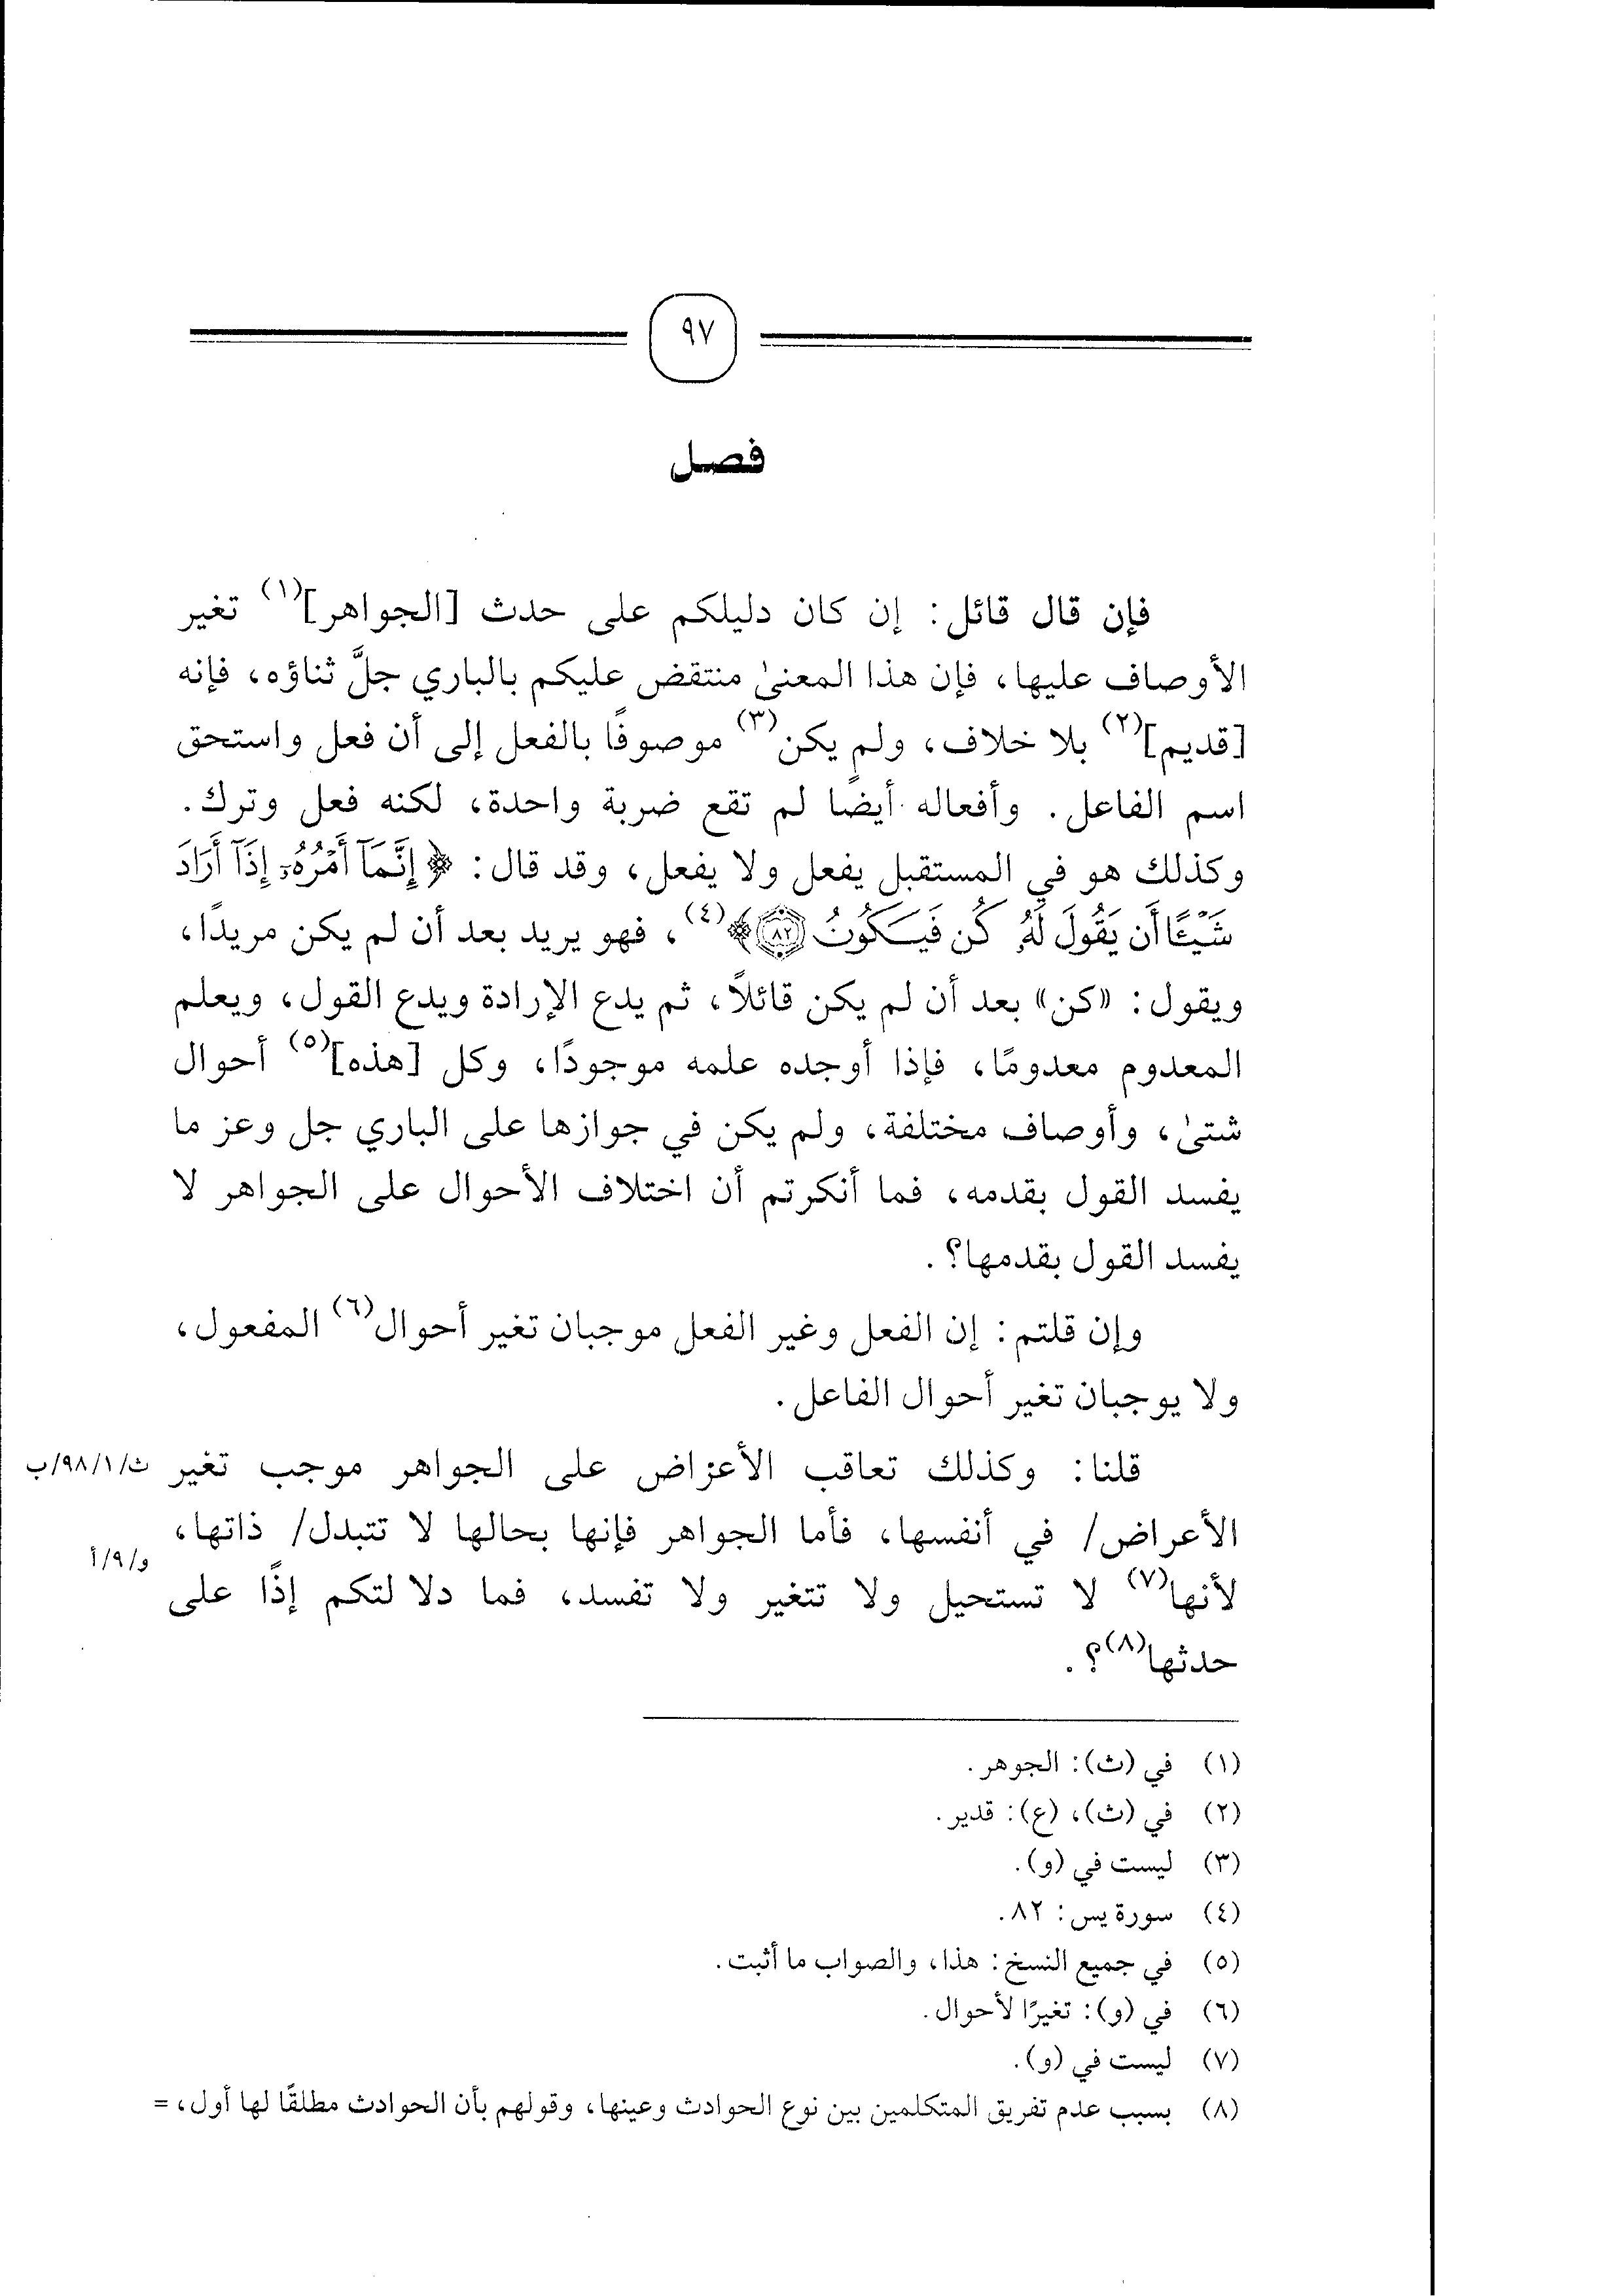 ٩٧
فصل
فإن قال قائل: إن كان دليلكم على حدث [الجواهر](١) تغير
الأوصاف عليها، فإن هذا المعنىٰ منتقض عليكم بالباري جلَّ ثناؤه، فإنه
[قديم](٢) بلا خلاف، ولم يكن(٣) موصوفًا بالفعل إلى أن فعل واستحق
اسم الفاعل. وأفعاله أيضًا لم تقع ضربة واحدة، لكنه فعل وترك.
وكذلك هو في المستقبل يفعل ولا يفعل، وقد قال: ﴿إِنَّمَآ أَمْرُهُۥٓ إِذَآ أَرَادَ
شَيْـًٔا أَن يَقُولَ لَهُۥ كُن فَيَكُونُ ٨٢﴾(٤)، فهو يريد بعد أن لم يكن مريدًا،
ويقول: «كن» بعد أن لم يكن قائلاً، ثم يدع الإرادة ويدع القول، ويعلم
المعدوم معدومًا، فإذا أوجده علمه موجودًا، وكل [هذه](٥) أحوال
شتىٰ، وأوصاف مختلفة، ولم يكن في جوازها على الباري جل وعز ما
يفسد القول بقدمه، فما أنكرتم أن اختلاف الأحوال على الجواهر لا
يفسد القول بقدمها؟.
وإن قلتم: إن الفعل وغير الفعل موجبان تغير أحوال(٦) المفعول،
ولا يوجبان تغير أحوال الفاعل.
قلنا: وكذلك تعاقب الأعراض على الجواهر موجب تغير
ث/٩٨/١/ب
الأعراض/ في أنفسها، فأما الجواهر فإنها بحالها لا تتبدل/ ذاتها،
و/٩/أ
لأنها(٧) لا تستحيل ولا تتغير ولا تفسد، فما دلا لتكم إذًا على
حدثها(٨)؟.
(١) في (ث): الجوهر.
(٢) في (ث)، (ع): قدير.
(٣) ليست في (و).
(٤) سورة يس: ٨٢.
(٥) في جميع النسخ: هذا، والصواب ما أثبت.
(٦) في (و): تغيرًا لأحوال.
(٧) ليست في (و).
(٨) بسبب عدم تفريق المتكلمين بين نوع الحوادث وعينها، وقولهم بأن الحوادث مطلقًا لها أول، =